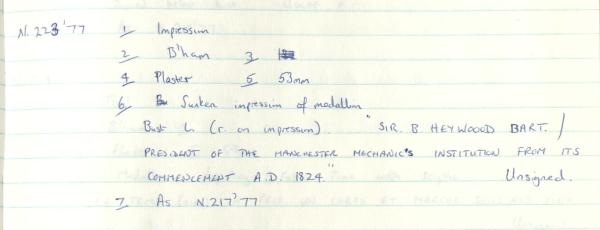 N. 223'77 1 Impression
2 B'ham 3
4 Plaster 5 53mm
6 Sunken impression of medallion
Bust L (r. on impression). "SIR. B HEYWOOD BART. /
PRESIDENT OF THE MANCHESTER MECHANIC'S INSTITUTION FROM ITS
COMMENCEMENT A.D. 1824." Unsigned.
7 As N.217'77